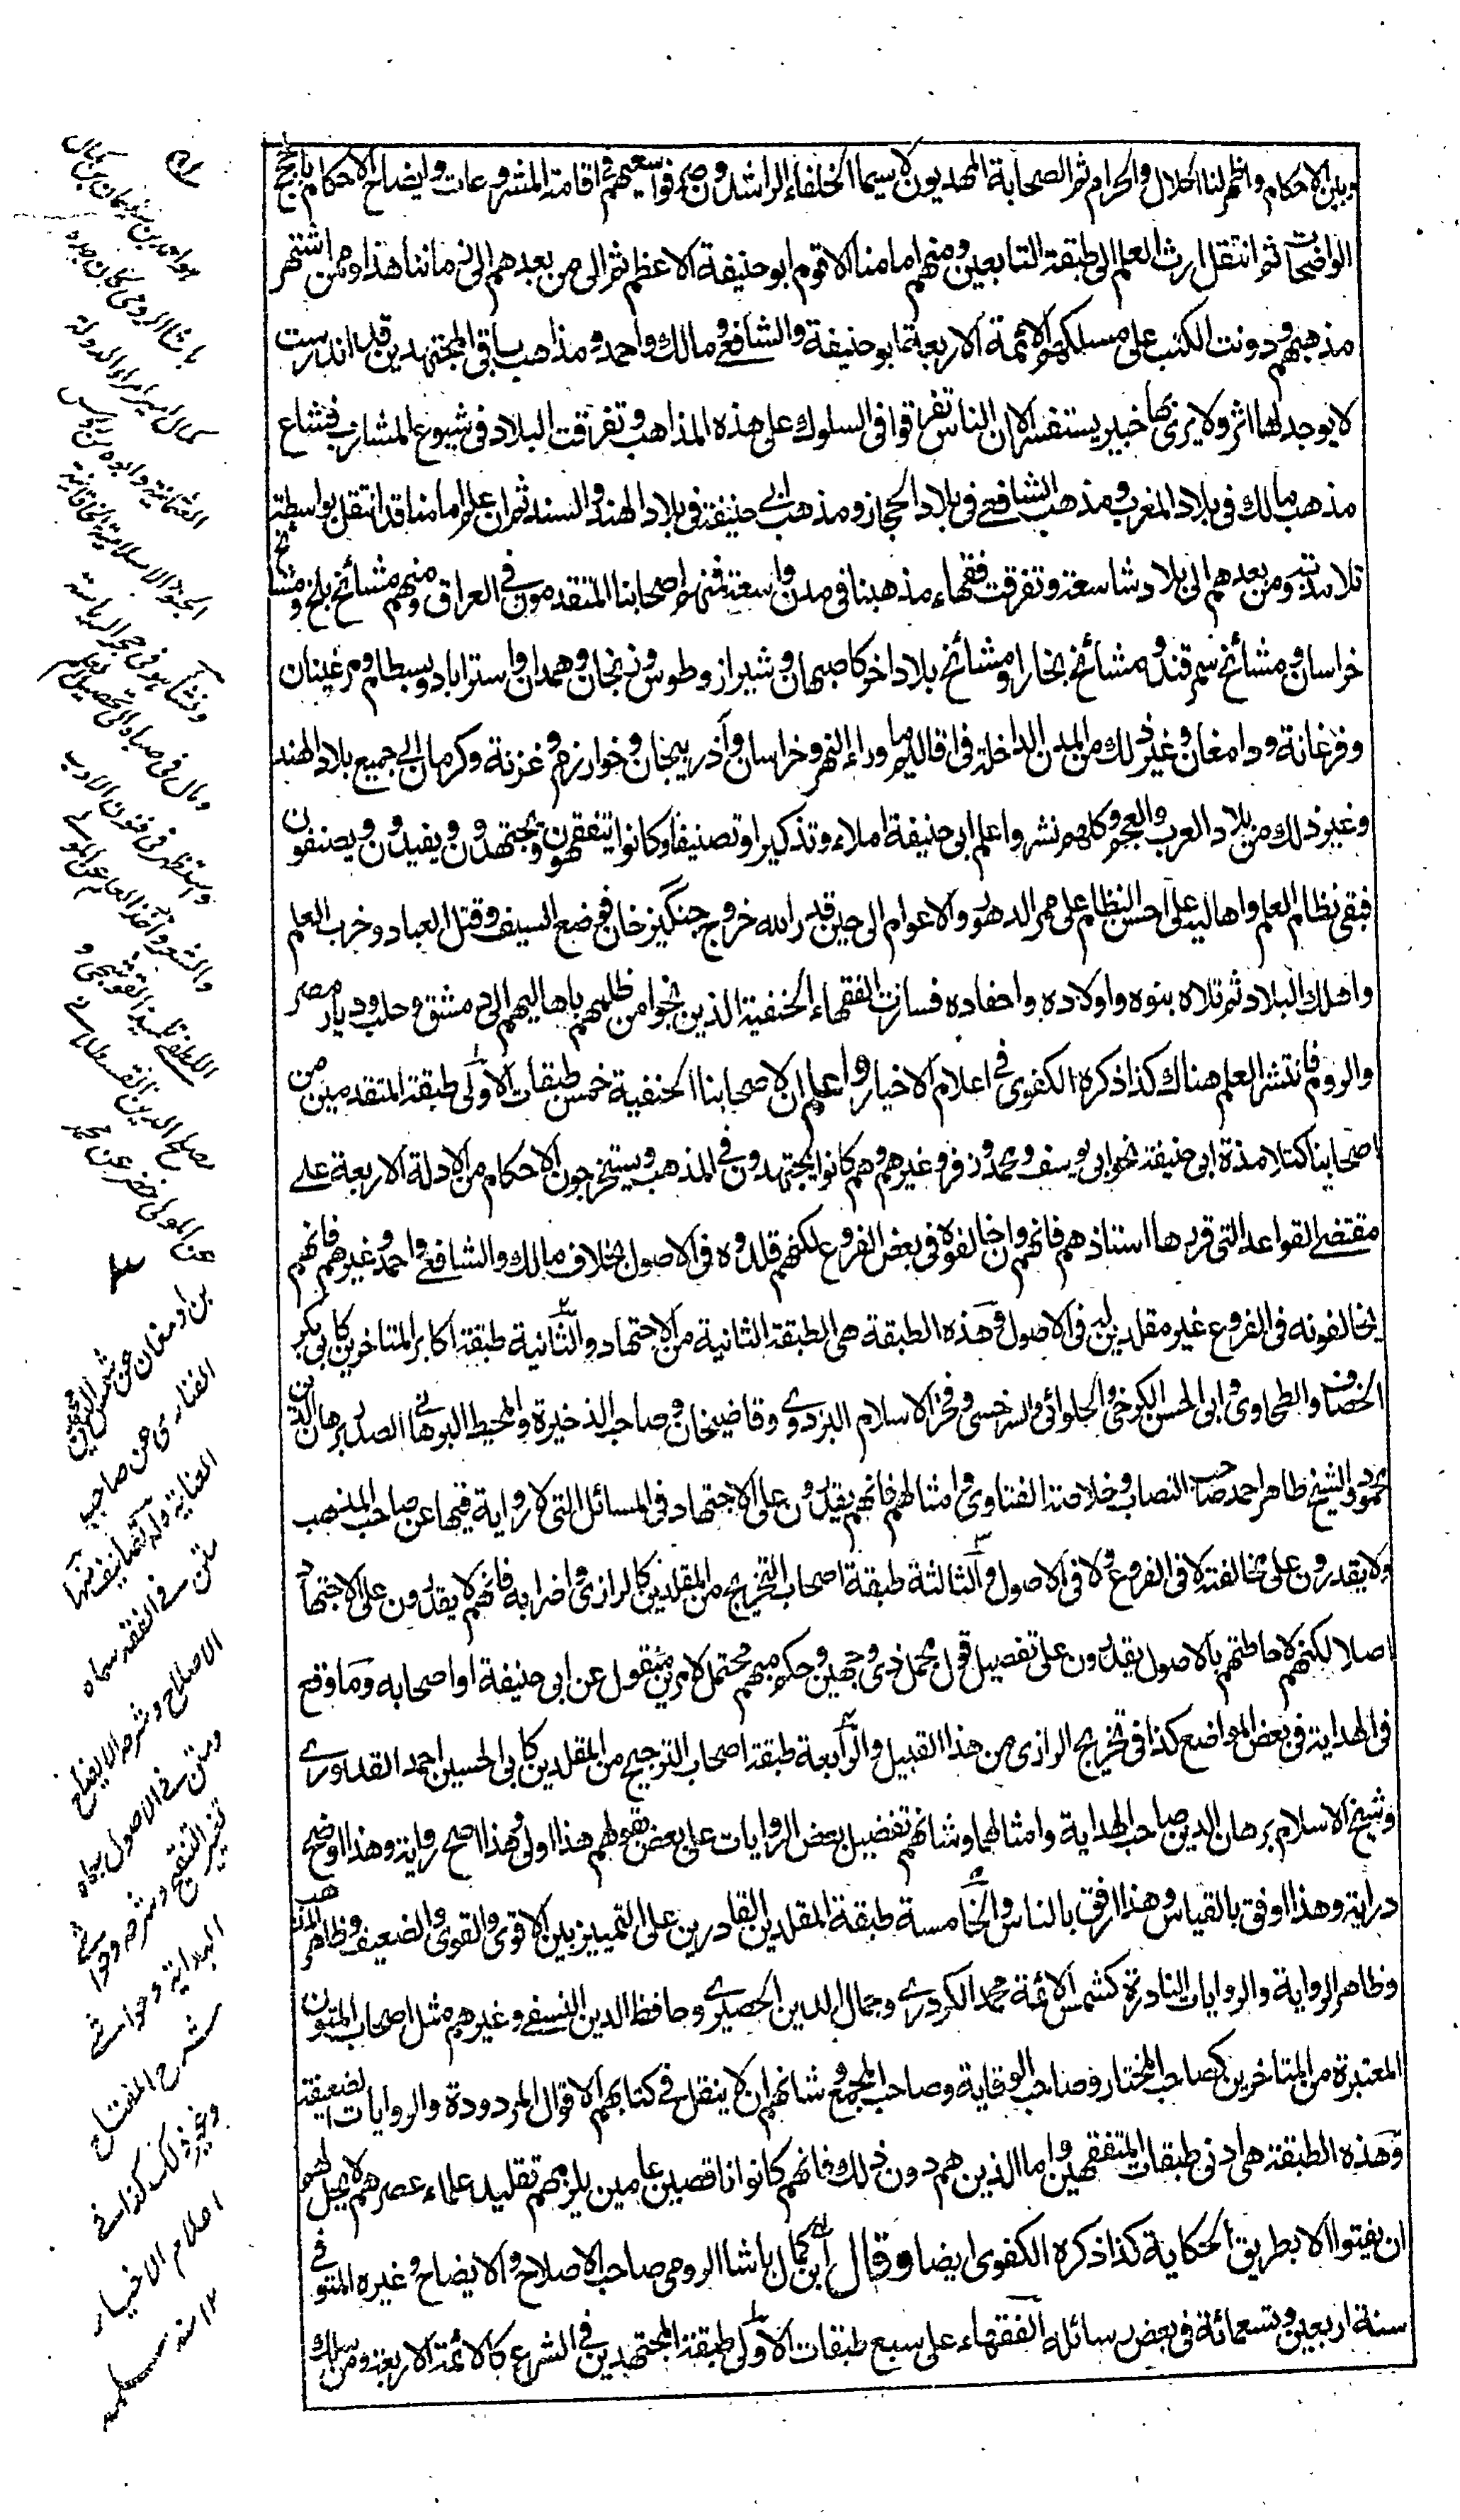 وبين الاحكام واظهر لنا الحلال والحرام ثم الصحابة المهديون لا سيما الخلفاء الراشدون صرفوا سعيهم في اقامة المشروعات وايضاح الاحكام بالحجج
الواضحات ثم انتقل ارث العلم الى طبقة التابعين ومنهم امامنا الاقوم ابو حنيفة الاعظم ثم الى من بعدهم الى زماننا هذا وممن اشتهر
مذهبهم ودونت الكتب على مسلكهم الائمة الاربعة ابو حنيفة والشافعي ومالك واحمد ومذاهب باقي المجتهدين قد اندرست
لا يوجد لها اثر ولا يرى بها خبير يستفسر الا ان الناس تفرقوا في السلوك على هذه المذاهب وتفرقت البلاد في شيوع المشارب فشاع
مذهب مالك في بلاد المغرب ومذهب الشافعي في بلاد الحجاز ومذهب ابي حنيفة في بلاد الهند والسند ثم ان علم امامنا قد انتقل بواسطة
تلامذته ومن بعدهم الى بلاد شاسعة وتفرقت فقهاء مذهبنا في مدن واسعة فمنهم اصحابنا المتقدمون في العراق ومنهم مشائخ بلخ ومشائخ
خراسان ومشائخ سمرقند ومشائخ بخارا ومشائخ بلاد اخر كاصبهان وشيراز وطوس وزنجان وهمدان واستراباد وبسطام ومرغينان
وفرغانة ودامغان وغير ذلك من المدن الداخلة في اقاليم ما وراء النهر وخراسان وآذربيجان وخوارزم وغزنة وكرمان الى جميع بلاد الهند
وغير ذلك من بلاد العرب والعجم وكلهم نشروا علم ابي حنيفة املاء وتذكيرا وتصنيفا وكانوا يتفقهون ويجتهدون ويفيدون ويصنفون
فبقي نظام العلم واهاليه على احسن النظام على ممر الدهور والاعوام الى حين قدر الله خروج جنگيز خان فوضع السيف وقتل العباد وخرب العلم
واهلك البلاد ثم تلاه بنوه واولاده واحفاده فسارت الفقهاء الحنفية الذين نجوا من ظلمهم باهاليهم الى دمشق وحلب وديار مصر
والروم فانتشر العلم هناك كذا ذكره الكفوي في اعلام الاخيار واعلم ان لاصحابنا الحنفية خمس طبقات الاولى طبقة المتقدمين من
اصحابنا كتلامذة ابي حنيفة نحو ابي يوسف ومحمد وزفر وغيرهم وهم كانوا يجتهدون في المذهب ويستخرجون الاحكام من الادلة الاربعة على
مقتضى القواعد التي قررها استاذهم فانهم وان خالفوه في بعض الفروع لكنهم قلدوه في الاصول بخلاف مالك والشافعي واحمد وغيرهم فانهم
يخالفونه في الفروع غير مقلدين له في الاصول وهذه الطبقة هي الطبقة الثانية من الاجتهاد والثانية طبقة اكابر المتاخرين كابي بكر
الخصاف والطحاوي وابي الحسن الكرخي والحلوائي والسرخسي وفخر الاسلام البزدوي وقاضيخان وصاحب الذخيرة والمحيط البرهاني الصدر برهان الدين
محمود والشيخ طاهر احمد صاحب النصاب وخلاصة الفتاوى وامثالهم فانهم يقدرون على الاجتهاد في المسائل التي لا رواية فيها عن صاحب المذهب
ولا يقدرون على مخالفته لا في الفروع ولا في الاصول والثالثة طبقة اصحاب التخريج من المقلدين كالرازي واضرابه فانهم لا يقدرون على الاجتهاد
اصلا لكنهم لاحاطتهم بالاصول يقدرون على تفصيل قول مجمل ذي وجهين وحكم مبهم محتمل لامرين منقول عن ابي حنيفة او اصحابه وما وقع
في الهداية في بعض المواضع كذا في تخريج الرازي من هذا القبيل والرابعة طبقة اصحاب الترجيح من المقلدين كابي الحسين احمد القدوري
وشيخ الاسلام برهان الدين صاحب الهداية وامثالهما وشانهم تفضيل بعض الروايات على بعض بقولهم هذا اولى وهذا اصح رواية وهذا اوضح
دراية وهذا اوفق بالقياس وهذا ارفق بالناس والخامسة طبقة المقلدين القادرين على التمييز بين الاقوى والقوي والضعيف وظاهر المذهب
وظاهر الرواية والروايات النادرة كشمس الائمة محمد الكردري وجمال الدين الحصيري وحافظ الدين النسفي وغيرهم مثل اصحاب المتون
المعتبرة من المتاخرين كصاحب المختار وصاحب الوقاية وصاحب المجمع وشانهم ان لا ينقل في كتابهم الاقوال المردودة والروايات الضعيفة
وهذه الطبقة هي ادنى طبقات المتفقهين واما الذين هم دون ذلك فانهم كانوا ناقصين عامين يلزمهم تقليد علماء عصرهم لا يحل لهم
ان يفتوا الا بطريق الحكاية كذا ذكره الكفوي ايضا وقال ابن كمال باشا الرومي صاحب الاصلاح والايضاح وغيره المتوفى
سنة اربعين وتسعمائة في بعض رسائله الفقهاء على سبع طبقات الاولى طبقة المجتهدين في الشرع كالائمة الاربعة ومن سلك
هو احمد بن سليمان بن كمال
باشا الرومي كان جده
كمال امير امراء الدولة
العثمانية وابوه من رؤس
الجنود الاسلامية الخاقانية
ونشأ هو في حجر الرياسة
ومال في صباه الى تحصيل العلم
واستظهر في فنون الادب
والشعر واخذ العلم عن المولى
اللطفي تلميذ القوشجي و
مصلح الدين القسطلاني
عن المولى خضر عن محمد
بن ارمغان عن شمس الدين محمد بن
الفناري عن صاحب
العناية وله تصانيف منها
متن في الفقه سماه
الاصلاح وشرحه الايضاح
ومتن في الاصول سماه
تغيير التنقيح وشرحه وحواشي
الهداية وحواشي
شرح المفتاح
وغير ذلك كذا في
اعلام الاخيار
١٢ منه